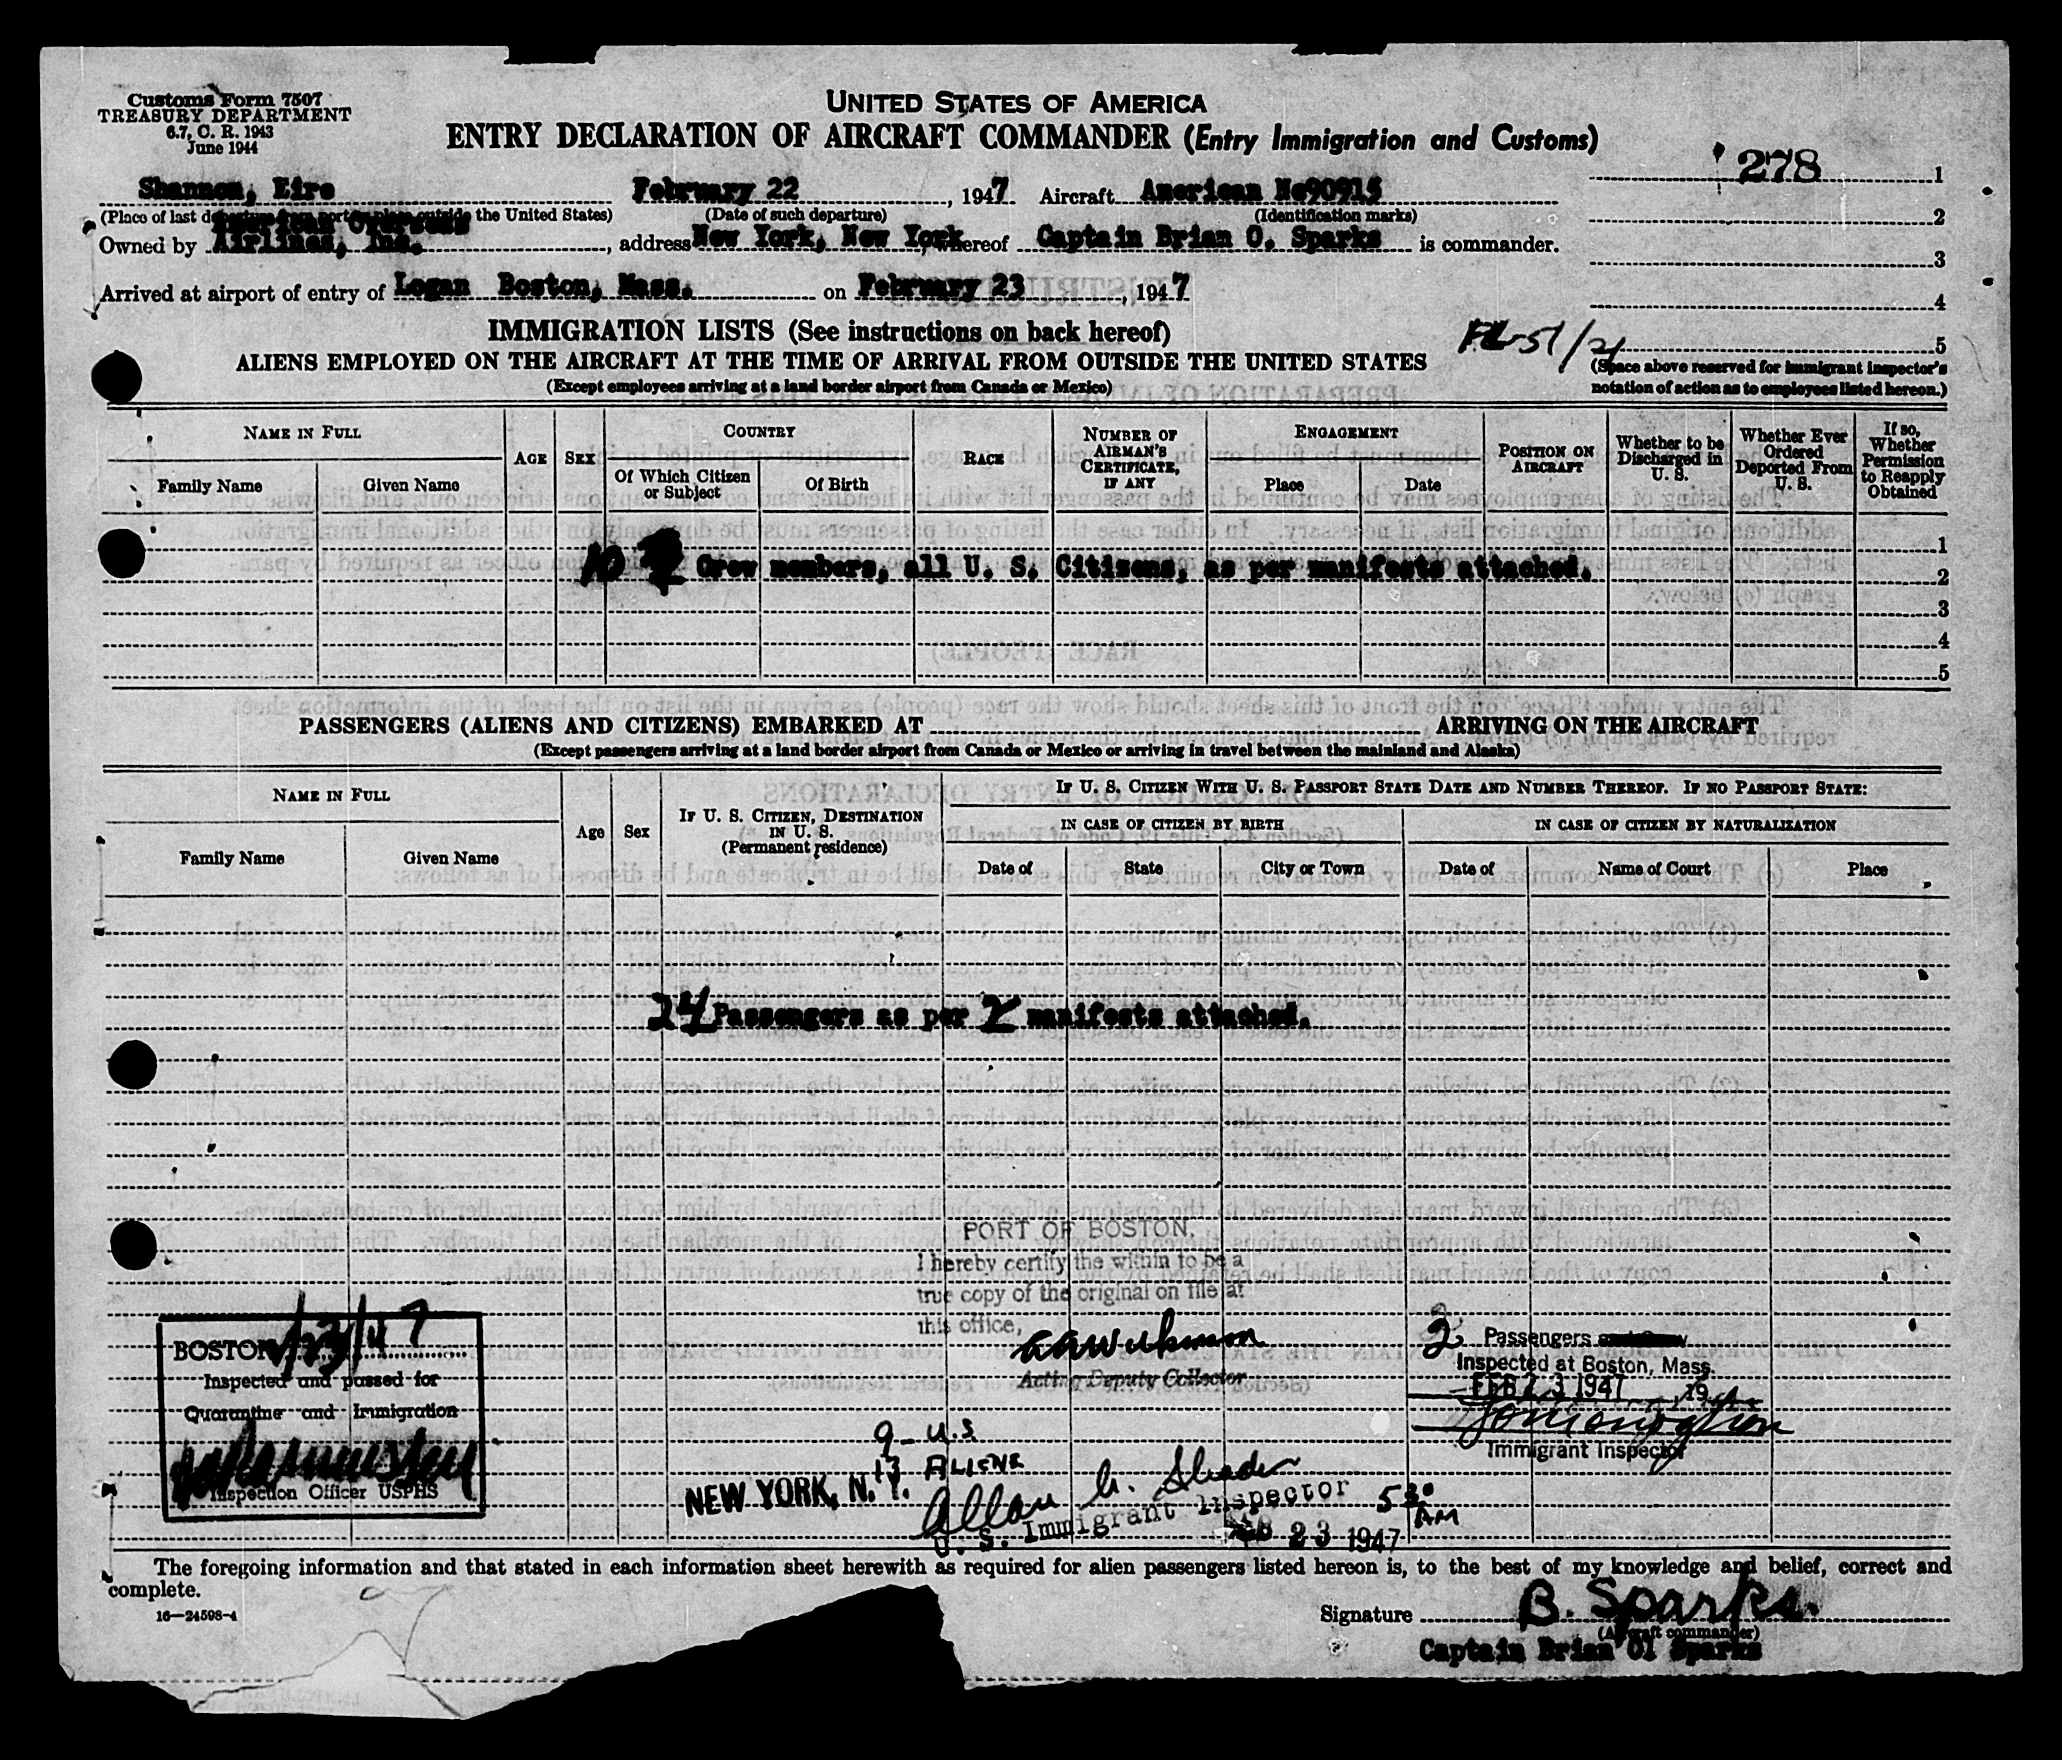 Customs Form 7507
TREASURY DEPARTMENT
6.7, C. R. 1943
June 1944
UNITED STATES OF AMERICA
ENTRY DECLARATION OF AIRCRAFT COMMANDER (Entry Immigration and Customs)
278 1
2
3
4
5
Shannon, Eire February 22, 1947 Aircraft American Nc90915
(Place of last departure from port or place outside the United States) (Date of such departure) (Identification marks)
Owned by American Overseas Airlines, Inc., address New York, New York, whereof Captain Brian O. Sparks is commander.
Arrived at airport of entry of Logan Boston, Mass. on February 23, 1947
FL-51/21
(Space above reserved for immigrant inspector's
notation of action as to employees listed hereon.)
IMMIGRATION LISTS (See instructions on back hereof)
ALIENS EMPLOYED ON THE AIRCRAFT AT THE TIME OF ARRIVAL FROM OUTSIDE THE UNITED STATES
(Except employees arriving at a land border airport from Canada or Mexico)
NAME IN FULL
Family Name
Given Name
AGE
SEX
COUNTRY
Of Which Citizen
or Subject
Of Birth
RACE
NUMBER OF
AIRMAN'S
CERTIFICATE,
IF ANY
ENGAGEMENT
Place
Date
POSITION ON
AIRCRAFT
Whether to be
Discharged in
U. S.
Whether Ever
Ordered
Deported From
U. S.
If so,
Whether
Permission
to Reapply
Obtained
1
10 Crew members, all U. S. Citizens, as per manifests attached. 2
3
4
5
PASSENGERS (ALIENS AND CITIZENS) EMBARKED AT ARRIVING ON THE AIRCRAFT
(Except passengers arriving at a land border airport from Canada or Mexico or arriving in travel between the mainland and Alaska)
NAME IN FULL
Family Name
Given Name
Age
Sex
IF U. S. CITIZEN, DESTINATION
IN U. S.
(Permanent residence)
IF U. S. CITIZEN WITH U. S. PASSPORT STATE DATE AND NUMBER THEREOF. IF NO PASSPORT STATE:
IN CASE OF CITIZEN BY BIRTH
IN CASE OF CITIZEN BY NATURALIZATION
Date of
State
City or Town
Date of
Name of Court
Place
24 Passengers as per 2 manifests attached.
PORT OF BOSTON,
I hereby certify the within to be a
true copy of the original on file at
this office,
Acting Deputy Collector
BOSTON 2/23/47
Inspected and passed for
Quarantine and Immigration
Inspection Officer USPHS
2 Passengers
Inspected at Boston, Mass.
FEB 23 1947 19
Immigrant Inspector
9 - U.S
13 ALIENS
NEW YORK, N. Y.
Allan
U. S. Immigrant Inspector
FEB 23 1947
5 30 AM
The foregoing information and that stated in each information sheet herewith as required for alien passengers listed hereon is, to the best of my knowledge and belief, correct and
complete.
16—24598-4
Signature B. Sparks.
(Aircraft commander)
Captain Brian O. Sparks